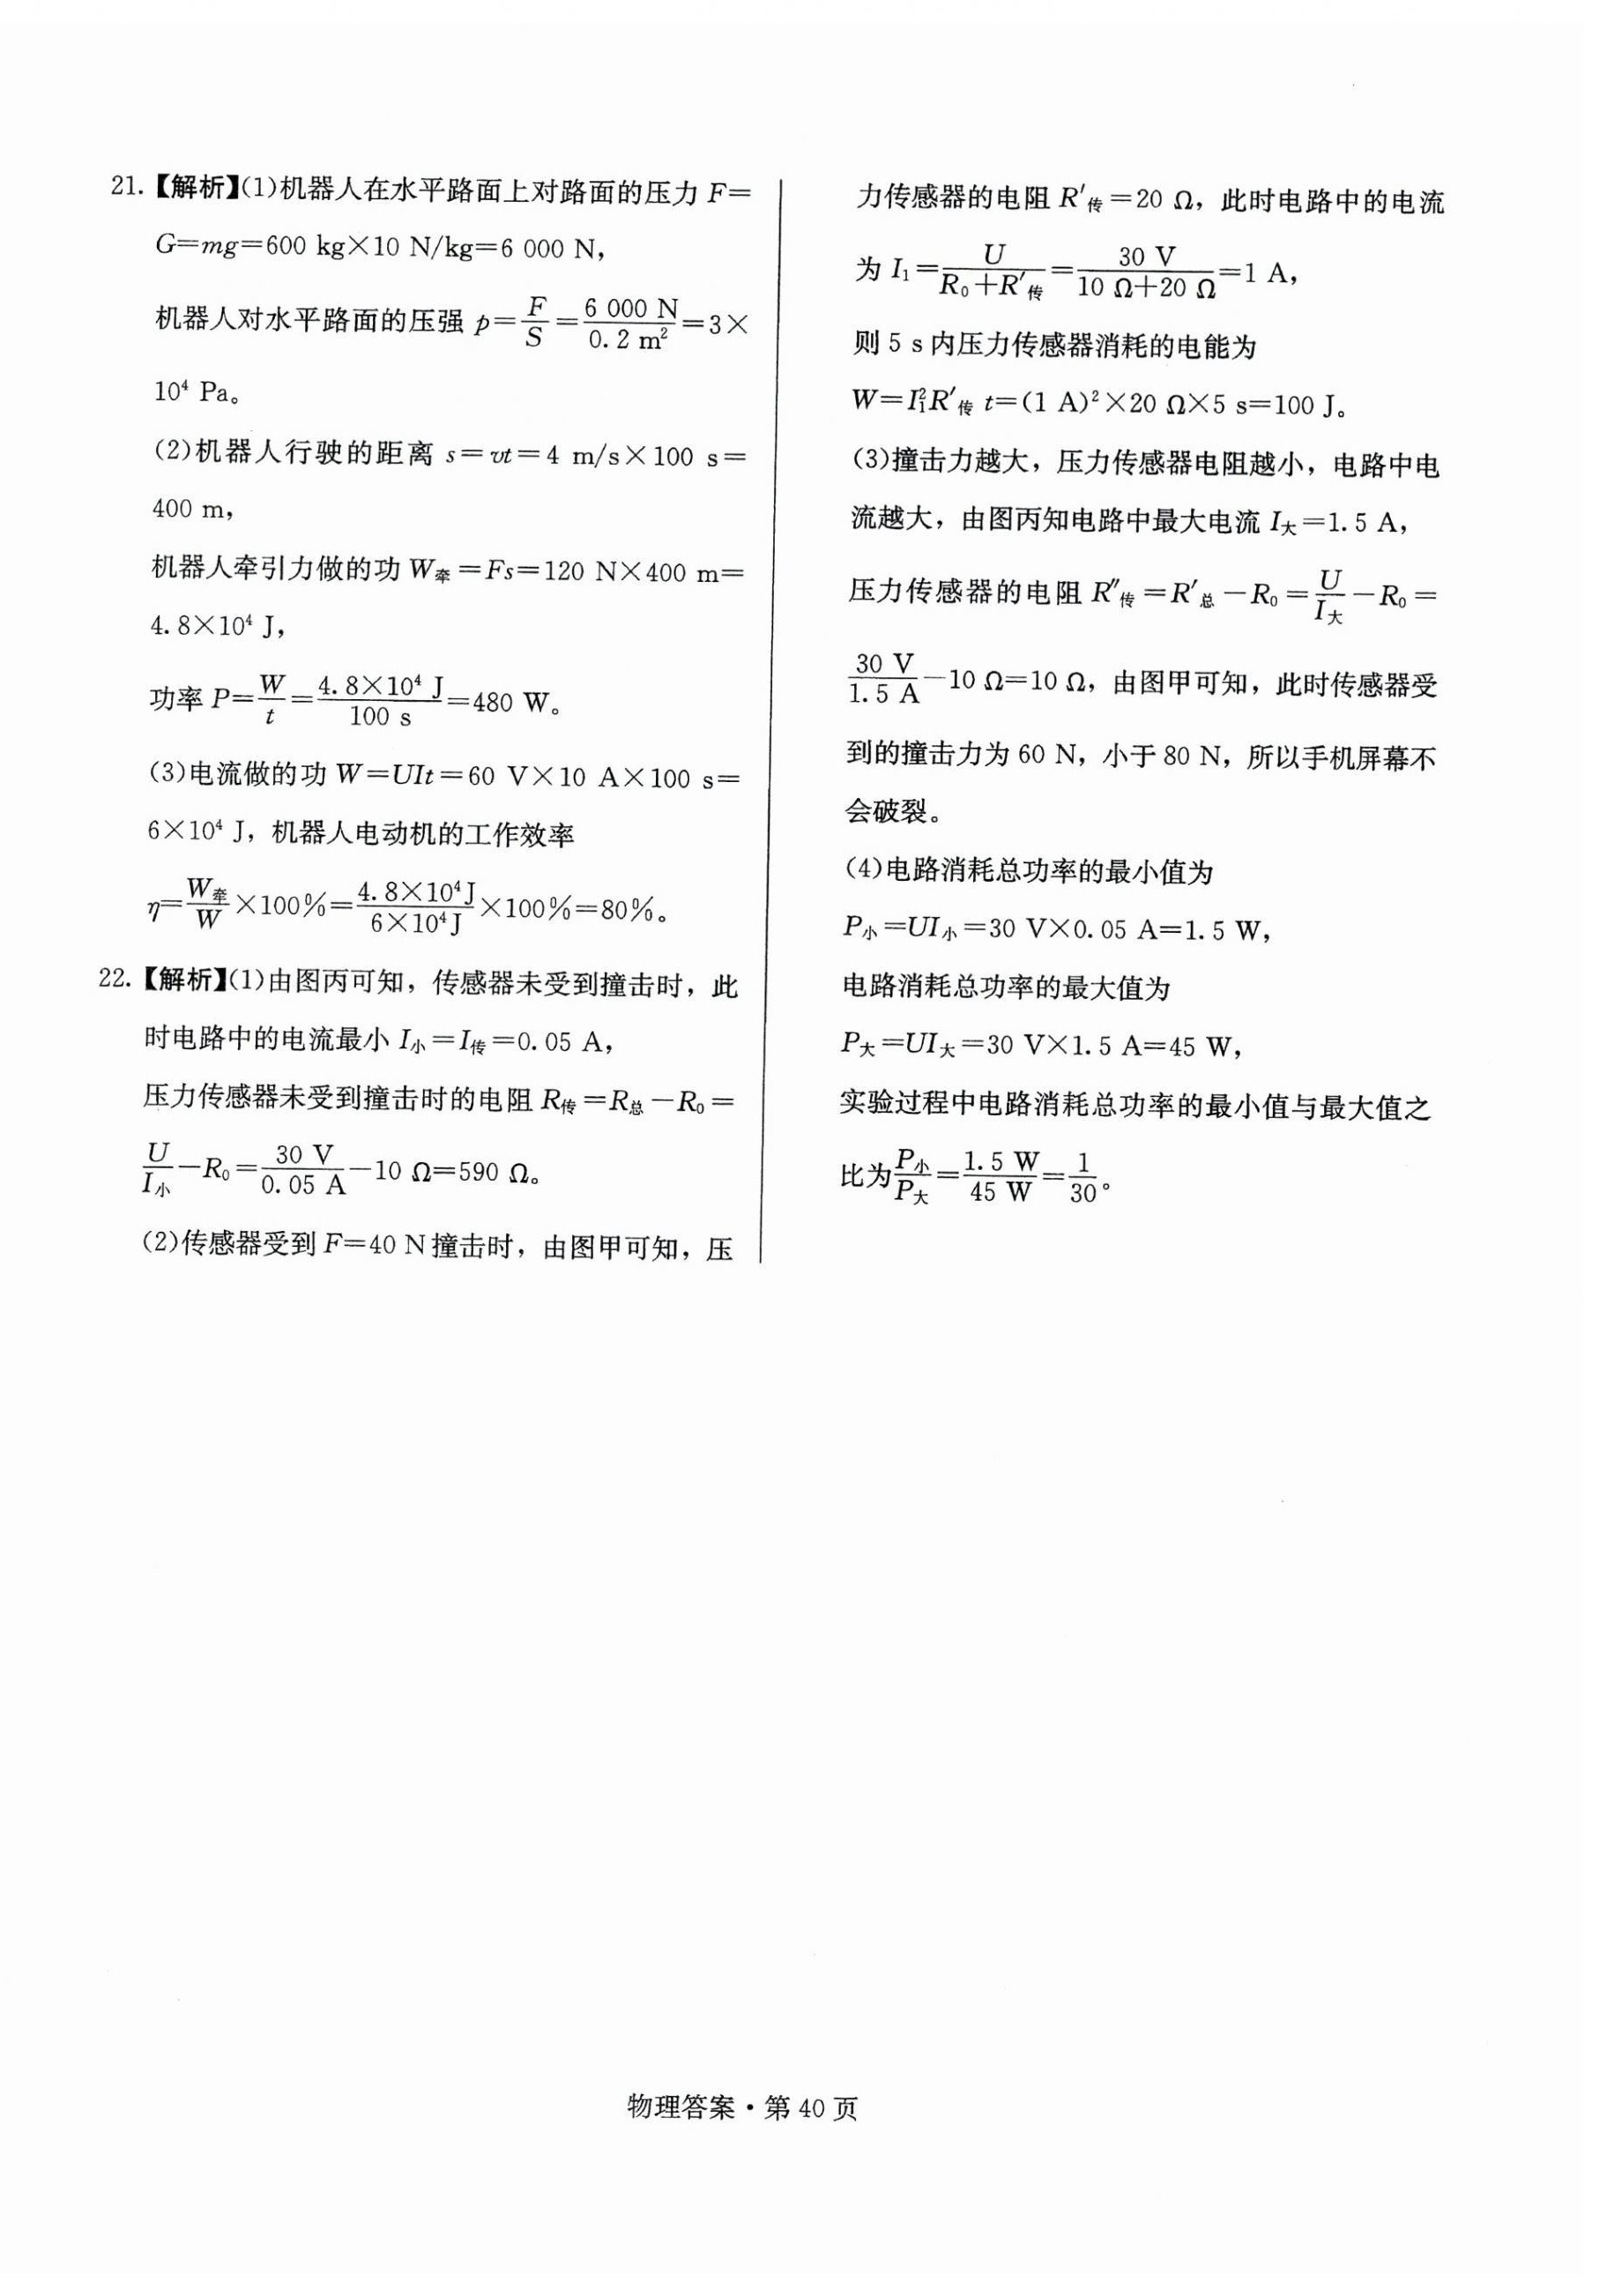 21.【解析】(1)机器人在水平路面上对路面的压力 F=
G=mg=600 kg×10 N/kg=6 000 N，
机器人对水平路面的压强 p=F/S=6 000 N/0.2 m²=3×
10⁴ Pa。
(2)机器人行驶的距离 s=vt=4 m/s×100 s=
400 m，
机器人牵引力做的功 W牵=Fs=120 N×400 m=
4.8×10⁴ J，
功率 P=W/t=4.8×10⁴ J/100 s=480 W。
(3)电流做的功 W=UIt=60 V×10 A×100 s=
6×10⁴ J，机器人电动机的工作效率
η=W牵/W×100%=4.8×10⁴J/6×10⁴J×100%=80%。
22.【解析】(1)由图丙可知，传感器未受到撞击时，此
时电路中的电流最小 I小=I传=0.05 A，
压力传感器未受到撞击时的电阻 R传=R总-R₀=
U/I小-R₀=30 V/0.05 A-10 Ω=590 Ω。
(2)传感器受到 F=40 N 撞击时，由图甲可知，压
力传感器的电阻 R′传=20 Ω，此时电路中的电流
为 I₁=U/(R₀+R′传)=30 V/(10 Ω+20 Ω)=1 A，
则 5 s 内压力传感器消耗的电能为
W=I₁²R′传 t=(1 A)²×20 Ω×5 s=100 J。
(3)撞击力越大，压力传感器电阻越小，电路中电
流越大，由图丙知电路中最大电流 I大=1.5 A，
压力传感器的电阻 R″传=R′总-R₀=U/I大-R₀=
30 V/1.5 A-10 Ω=10 Ω，由图甲可知，此时传感器受
到的撞击力为 60 N，小于 80 N，所以手机屏幕不
会破裂。
(4)电路消耗总功率的最小值为
P小=UI小=30 V×0.05 A=1.5 W，
电路消耗总功率的最大值为
P大=UI大=30 V×1.5 A=45 W，
实验过程中电路消耗总功率的最小值与最大值之
比为P小/P大=1.5 W/45 W=1/30。
物理答案·第 40 页